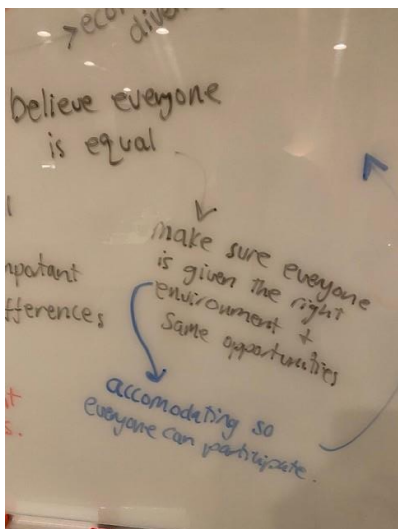 believe everyone
is equal
make sure everyone
is given the right
environment +
same opportunities
accomodating so
everyone can participate.